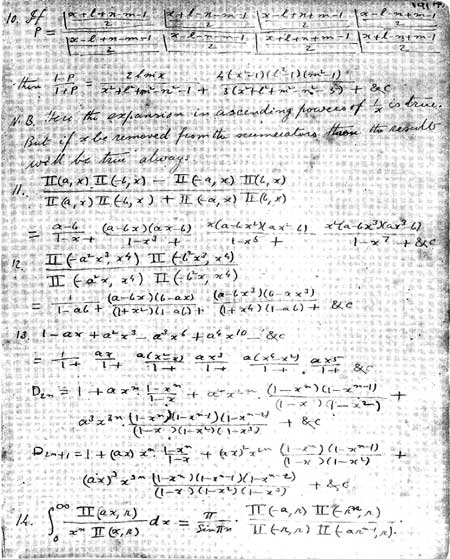 10. If
P = |x+l+n-m-1 / 2 |x+l-n-m-1 / 2 |x-l+n+m-1 / 2 |x-l-n+m-1 / 2
then (1-P)/(1+P) = 2lmx / x²+l²+m²-n²-1 + 4(x²-1)(l²-1)(m²-1) / 3(x²+l²+m²-n²-5) + &c
N.B. Here the expansion in ascending powers of 1/x is true.
But if x be removed from the numerators then the result
will be true always
11. Π(a, x) Π(-b, x) - Π(-a, x) Π(b, x)
Π(a, x) Π(-b, x) + Π(-a, x) Π(b, x)
= a-b / 1-x + (a-bx)(ax-b) / 1-x³ + x(a-bx²)(ax²-b) / 1-x⁵ + x²(a-bx³)(ax³-b) / 1-x⁷ + &c
12. Π(-a²x³, x⁴) Π(-b²x³, x⁴)
Π(-a²x, x⁴) Π(-b²x, x⁴)
= 1 / 1-ab + (a-bx)(b-ax) / (1+x²)(1-ab) + (a-bx³)(b-ax³) / (1+x⁴)(1-ab) + &c
13. 1 - ax + a²x³ - a³x⁶ + a⁴x¹⁰ - &c
= 1/1+ ax/1+ a(x²-x)/1+ ax³/1+ a(x⁴-x²)/1+ ax⁵/1+ &c
D₂ₙ = 1 + axⁿ (1-xⁿ)/(1-x) + a²x²ⁿ (1-xⁿ)(1-xⁿ⁻¹)/(1-x)(1-x²) +
a³x³ⁿ (1-xⁿ)(1-xⁿ⁻¹)(1-xⁿ⁻²)/(1-x)(1-x²)(1-x³) + &c
D₂ₙ₊₁ = 1 + (ax) xⁿ (1-xⁿ)/(1-x) + (ax)² x²ⁿ (1-xⁿ)(1-xⁿ⁻¹)/(1-x)(1-x²) +
(ax)³ x³ⁿ (1-xⁿ)(1-xⁿ⁻¹)(1-xⁿ⁻²)/(1-x)(1-x²)(1-x³) + &c